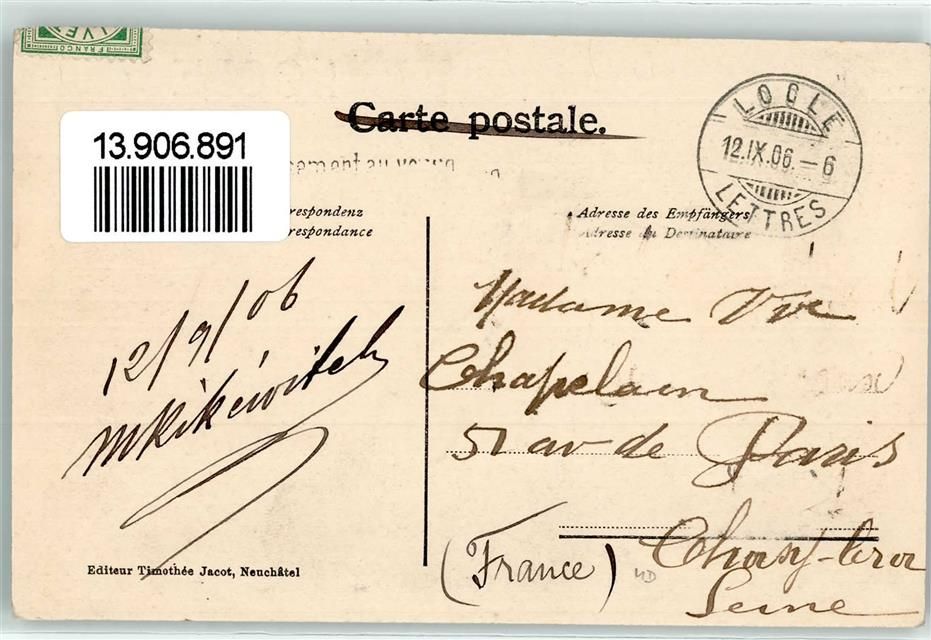 FRANCO
Carte postale.
LOCLE
12.IX.06.–6
LETTRES
13.906.891
ement au verso
respondenz
respondance
Adresse des Empfängers
Adresse du Destinataire
12/9/06
mkikéwitch
Madame Vve
Chapelain
51 av de Paris
Choisy-
Seine
(France)
Editeur Timothée Jacot, Neuchâtel